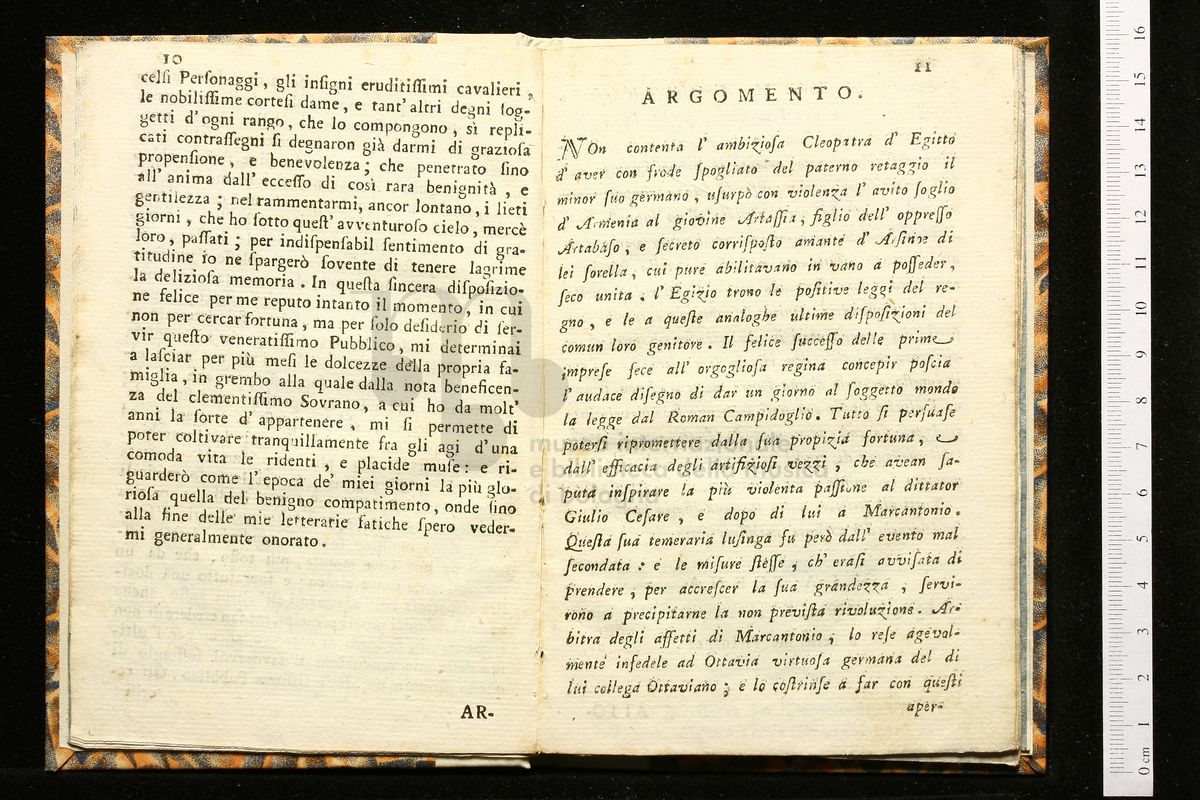 10
celſi Perſonaggi, gli inſigni eruditiſſimi cavalieri,
le nobiliſſime corteſi dame, e tant' altri degni ſog-
getti d' ogni rango, che lo compongono, sì repli-
cati contraſſegni ſi degnaron già darmi di grazioſa
propenſione, e benevolenza; che penetrato ſino
all' anima dall' ecceſſo di così rara benignità, e
gentilezza; nel rammentarmi, ancor lontano, i lieti
giorni, che ho ſotto queſt' avventuroſo cielo, mercè
loro, paſſati; per indiſpenſabil ſentimento di gra-
titudine io ne ſpargerò ſovente di tenere lagrime
la delizioſa memoria. In queſta ſincera diſpoſizio-
ne felice per me reputo intanto il momento, in cui
non per cercar fortuna, ma per ſolo deſiderio di ſer-
vir queſto veneratiſſimo Pubblico, mi determinai
a laſciar per più meſi le dolcezze della propria fa-
miglia, in grembo alla quale dalla nota beneficen-
za del clementiſſimo Sovrano, a cui ho da molt'
anni la ſorte d' appartenere, mi ſi permette di
poter coltivare tranquillamente fra gli agi d' una
comoda vita le ridenti, e placide muſe: e ri-
guarderò come l' epoca de' miei giorni la più glo-
rioſa quella del benigno compatimento, onde ſino
alla fine delle mie letterarie fatiche ſpero veder-
mi generalmente onorato.
AR-
11
ARGOMENTO.
NOn contenta l' ambizioſa Cleopatra d' Egitto
d' aver con frode ſpogliato del paterno retaggio il
minor ſuo germano, uſurpò con violenza l' avito ſoglio
d' Armenia al giovine Artaſſia, figlio dell' oppreſſo
Artabaſo, e ſecreto corriſpoſto amante d' Arſinoe di
lei ſorella, cui pure abilitavano in vano a poſſeder,
ſeco unita, l' Egizio trono le poſitive leggi del re-
gno, e le a queſte analoghe ultime diſpoſizioni del
comun loro genitore. Il felice ſucceſſo delle prime
impreſe fece all' orgoglioſa regina concepir poſcia
l' audace diſegno di dar un giorno al ſoggetto mondo
la legge dal Roman Campidoglio. Tutto ſi perſuaſe
poterſi ripromettere dalla ſua propizia fortuna, e
dall' efficacia degli artifizioſi vezzi, che avean ſa-
puta inſpirare la più violenta paſſione al dittator
Giulio Ceſare, e dopo di lui a Marcantonio.
Queſta ſua temeraria luſinga fu però dall' evento mal
ſecondata: e le miſure ſteſſe, ch' eraſi avviſata di
prendere, per accreſcer la ſua grandezza, ſervi-
rono a precipitarne la non previſta rivoluzione. Ar-
bitra degli affetti di Marcantonio, lo reſe agevol-
mente infedele ad Ottavia virtuoſa germana del di
lui collega Ottaviano; e lo coſtrinſe a far con queſti
aper-
museo internazionale
e biblioteca della musica
di bologna